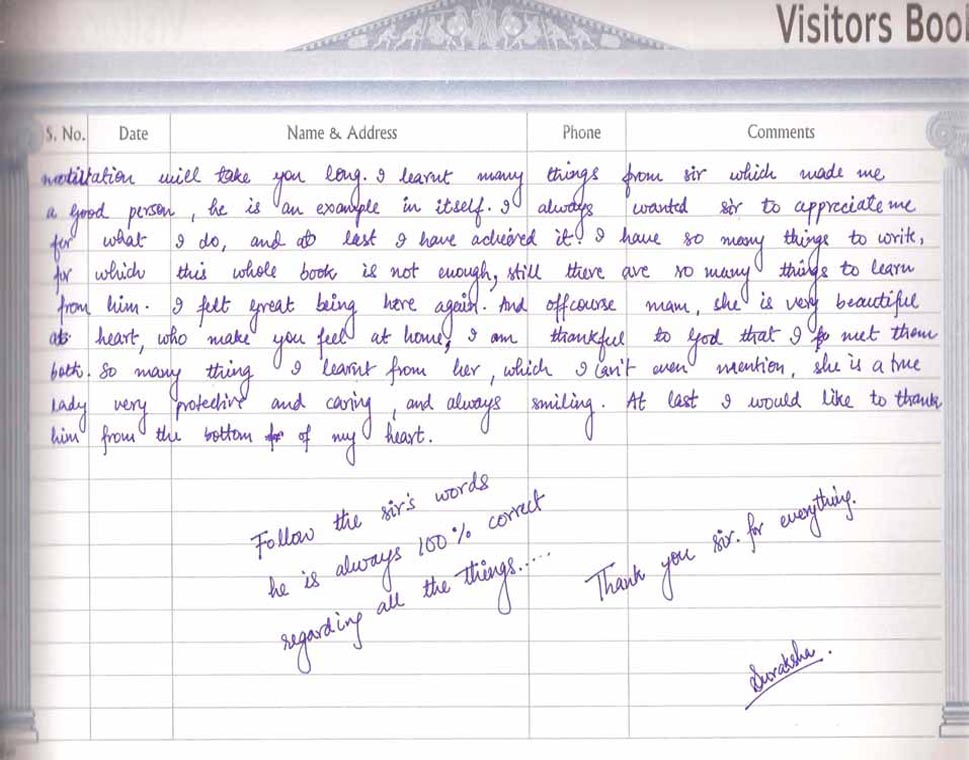 Visitors Boo
S. No. Date Name & Address Phone Comments
will take you long. I learnt many things from sir which made me
a good person, he is an example in itself. I always wanted sir to appreciate me
for what I do, and at last I have achieved it. I have so many things to write,
for which this whole book is not enough, still there are so many things to learn
from him. I felt great being here again. And offcourse mam, she is very beautiful
at heart, who make you feel at home, I am thankful to God that I met them
both. So many thing I learnt from her, which I can't even mention, she is a true
lady very protective and caring, and always smiling. At last I would like to thank
him from the bottom of my heart.
Follow the sir's words
he is always 100% correct
regarding all the things.....
Thank you sir. for everything.
Suraksha.